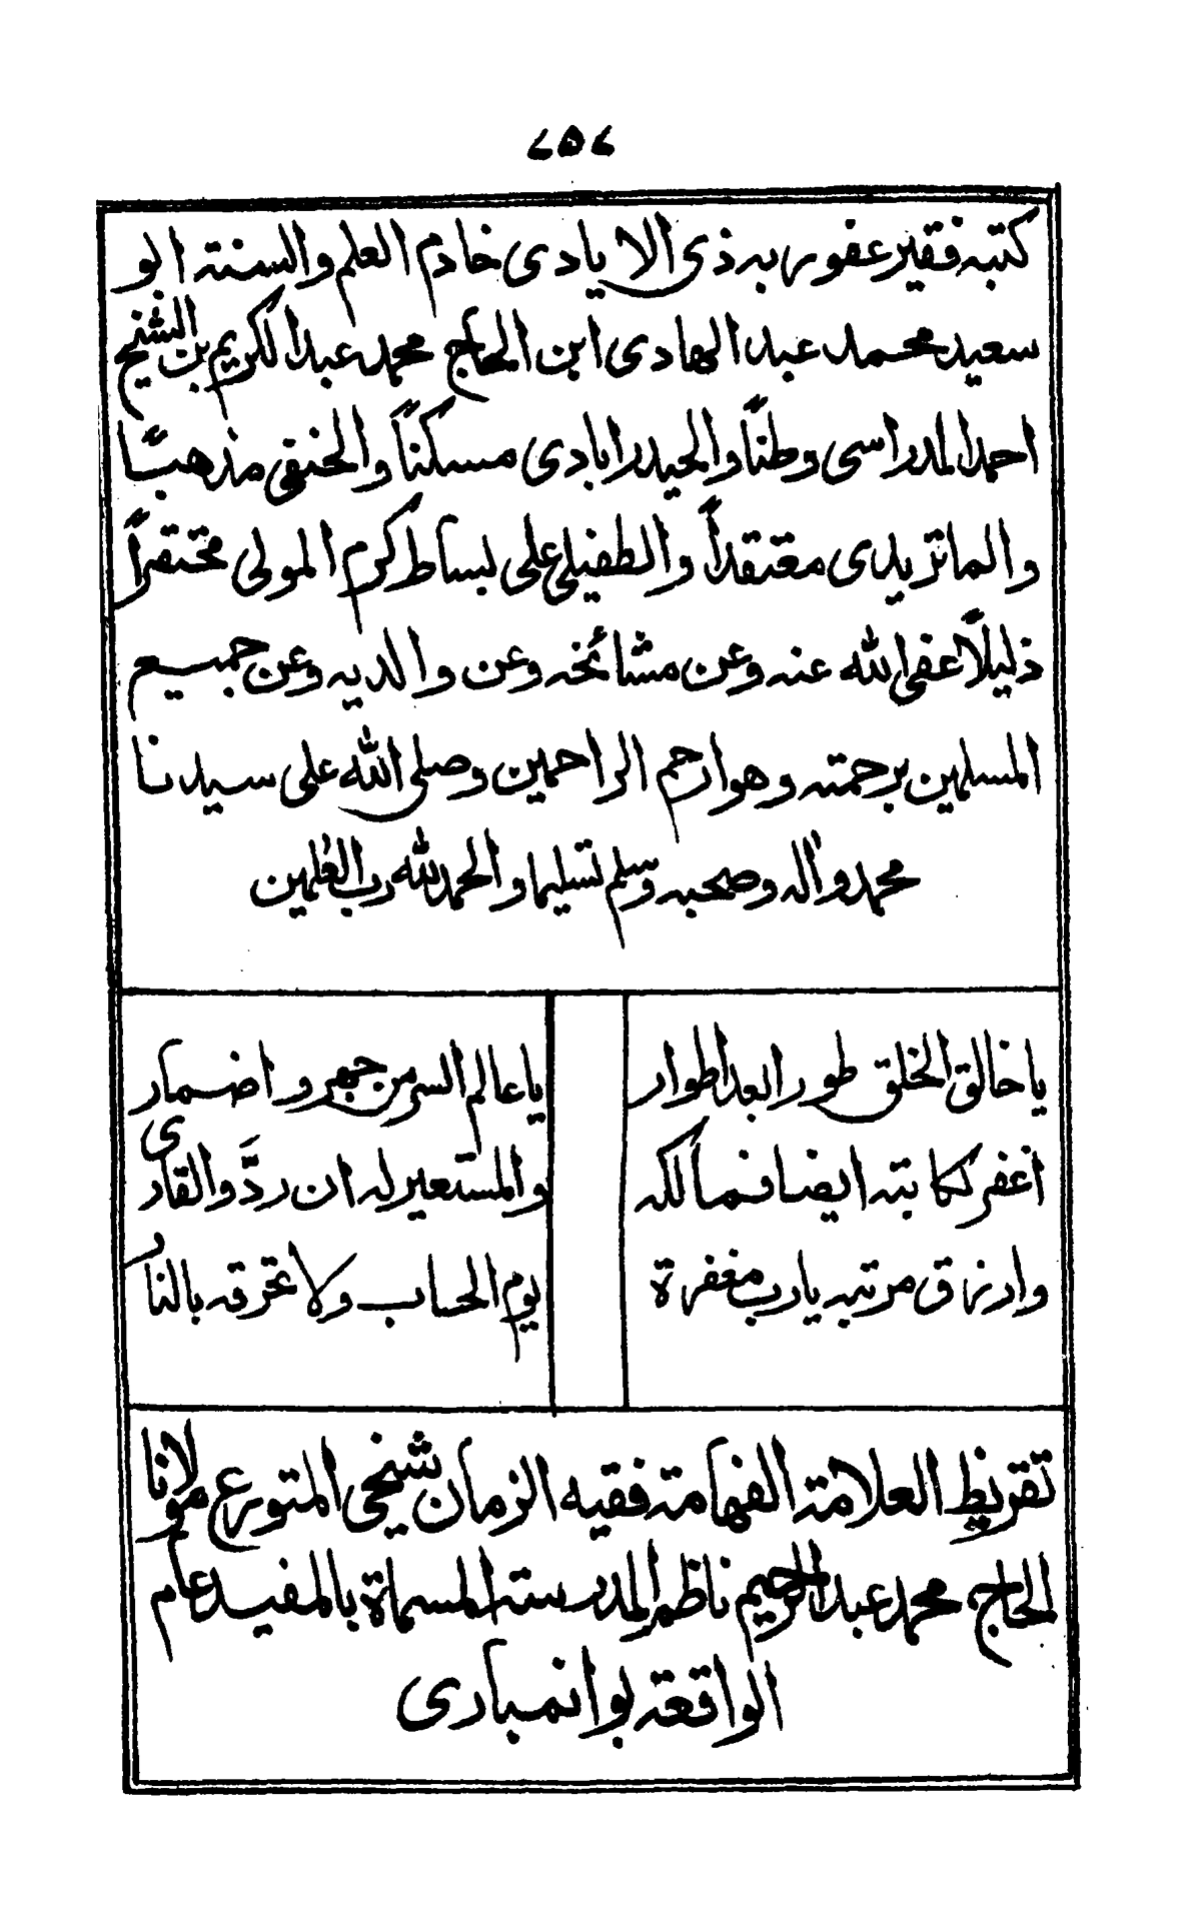 ٢٥٢
كتبه فقير عفو ربه ذى الايادى خادم العلم والسنته ابو
سعيد محمد عبد الهادى ابن الحاج محمد عبد الكريم بن الشيخ
احمد المدراسى وطنًا والحيدرابادى مسكنًا والحنفى مذهبًا
والماتريدى معتقدًا والطفيلى على بساط كرم المولى محتقرًا
ذليلًا عفى الله عنه وعن مشائخه وعن والديه وعن جميع
المسلمين برحمته وهو ارحم الراحمين وصلى الله على سيدنا
محمد واله وصحبه وسلم تسليما والحمد لله رب العٰلمين
يا خالق الخلق طورا بعد اطوار يا عالم السر من جهر واضمار
اغفر لكاتبه ايضا فمالكه والمستعير له ان ردَّ والقارى
وارزق مرتبه يارب مغفرة يوم الحساب ولا تحرقه بالنار
تقريظ العلامة الفهامة فقيه الزمان شيخى المتورع مولانا
الحاج محمد عبد الرحيم ناظم المدرسته المسماة بالمفيد عام
الواقعة بوانمبادى